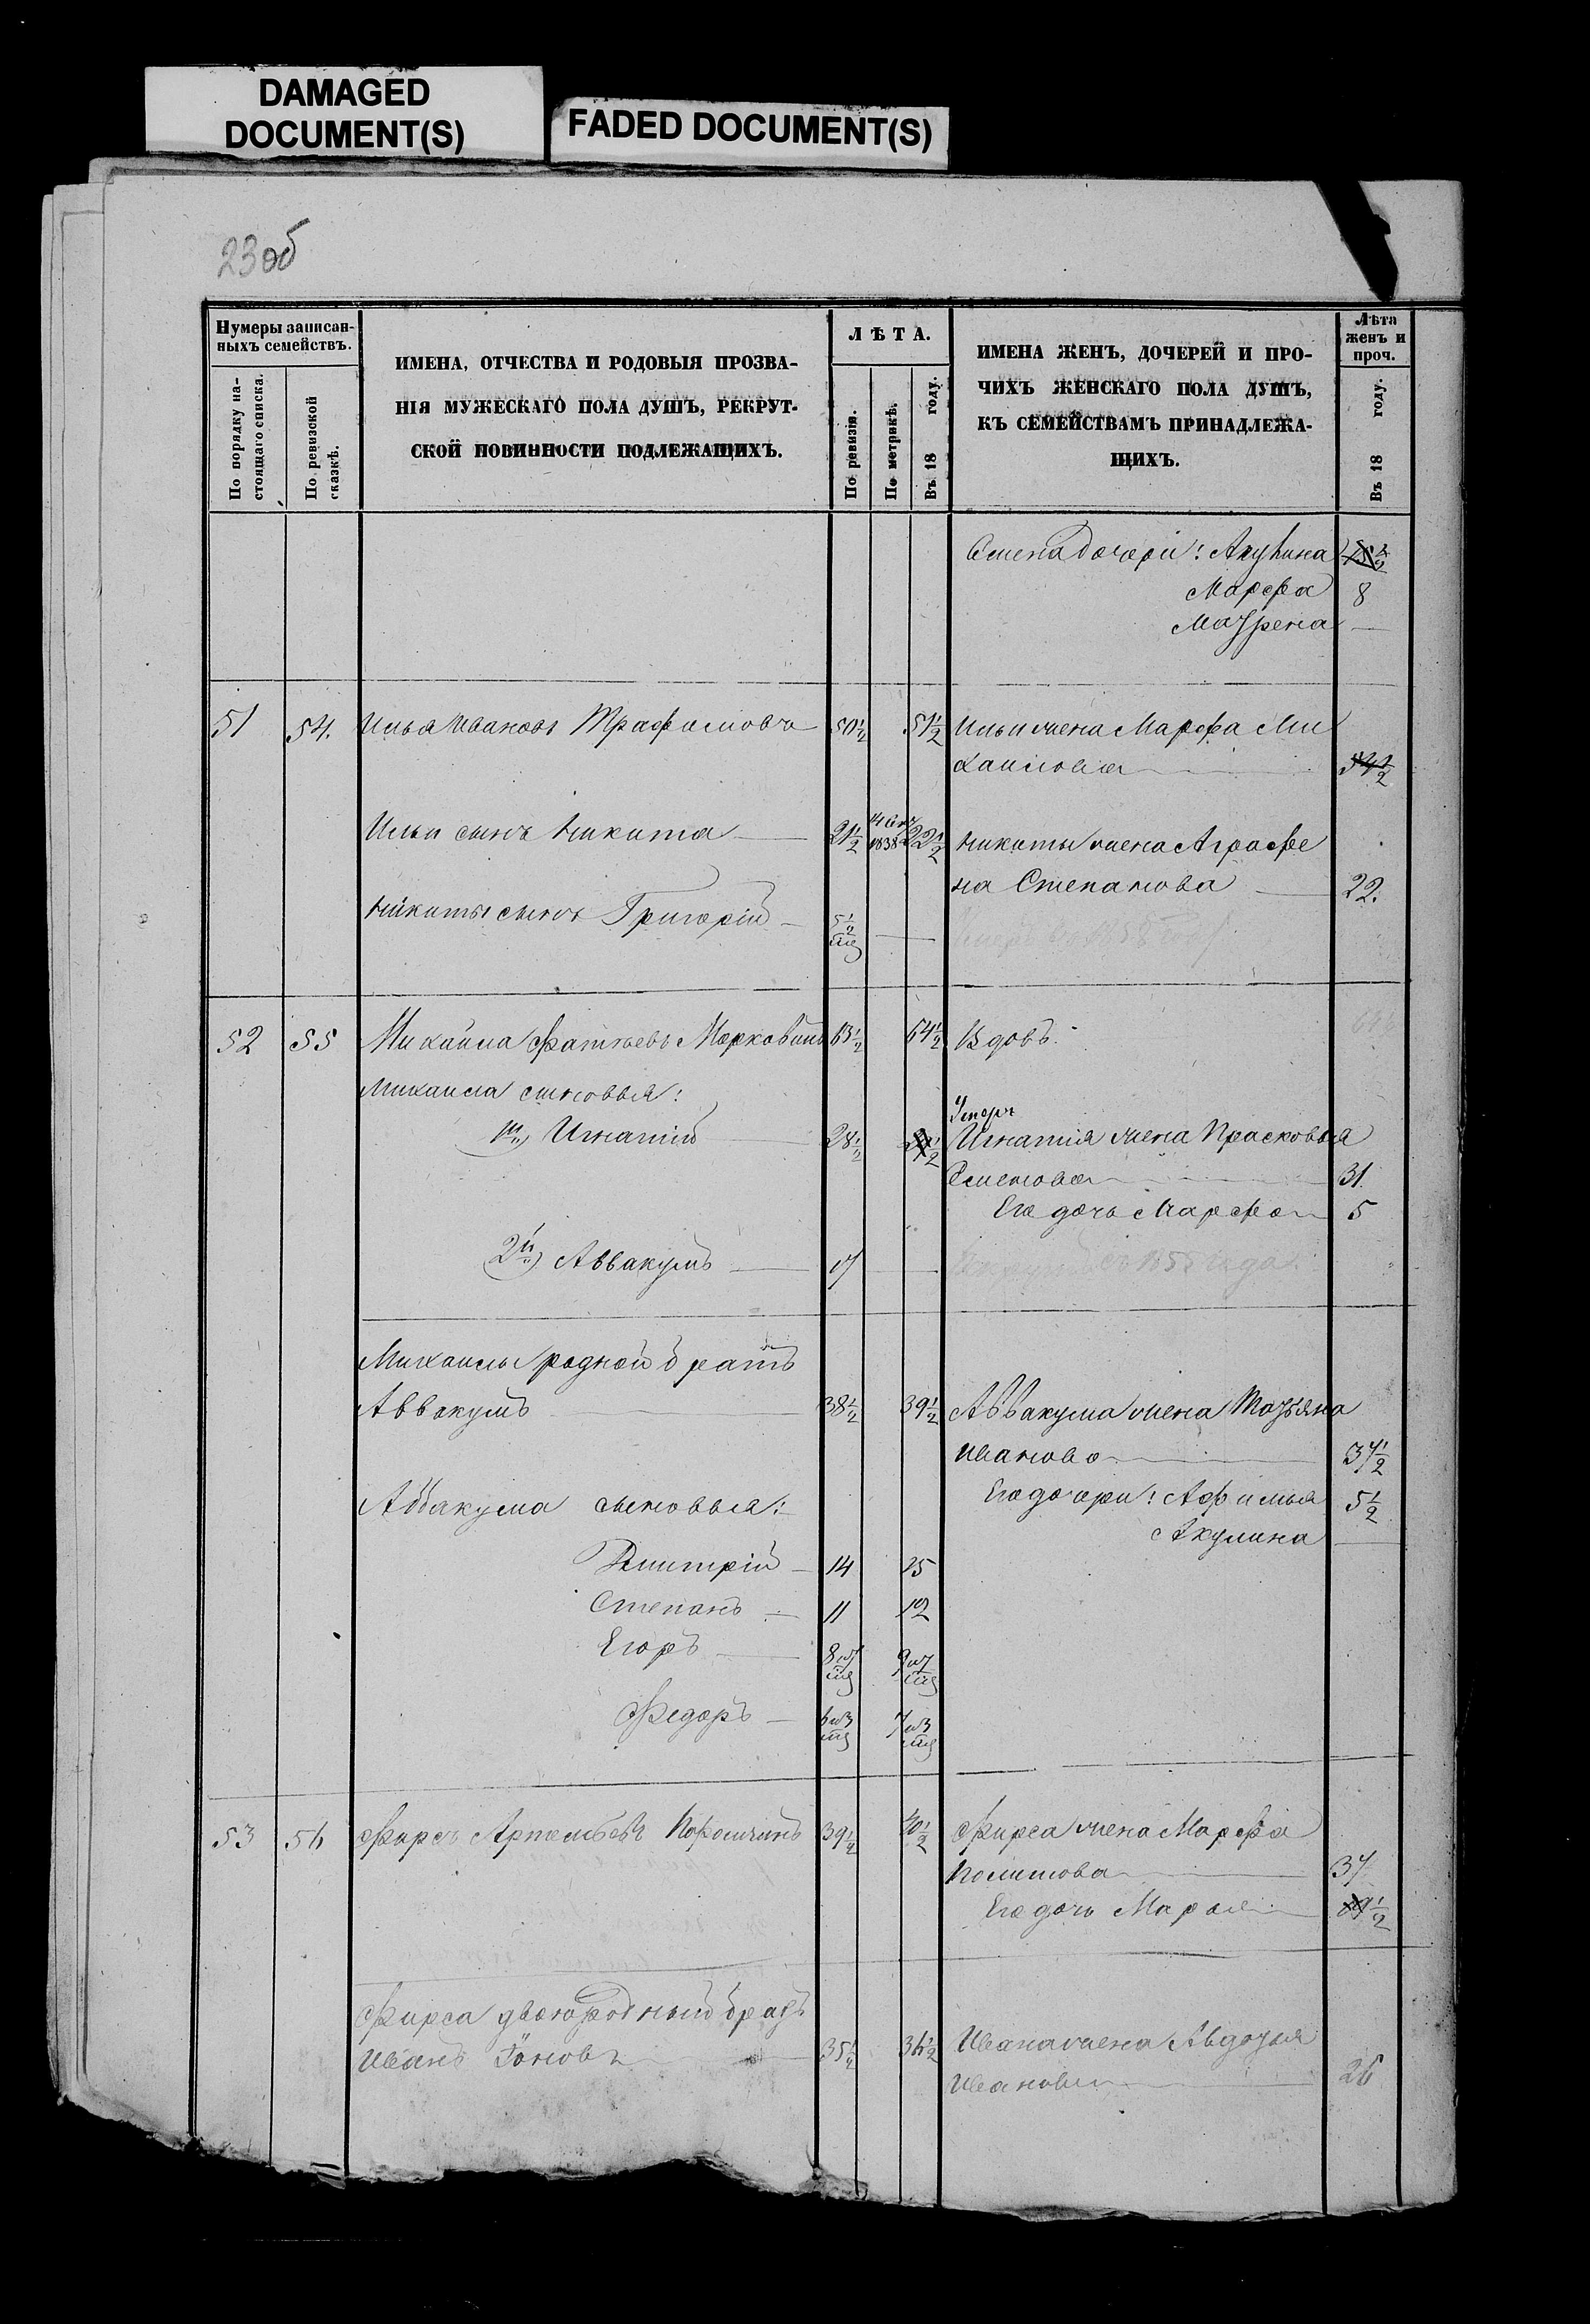 DAMAGED
DOCUMENT(S)
FADED DOCUMENT(S)
23об
Нумеры записан-
ныхъ семействъ.
По порядку на-
стоящаго списка.
По ревизской
сказкѣ.
ИМЕНА, ОТЧЕСТВА И РОДОВЫЯ ПРОЗВА-
НІЯ МУЖЕСКАГО ПОЛА ДУШЪ, РЕКРУТ-
СКОЙ ПОВИННОСТИ ПОДЛЕЖАЩИХЪ.
ЛѢТА.
По ревизіи.
По метрикѣ.
Въ 18 году.
ИМЕНА ЖЕНЪ, ДОЧЕРЕЙ И ПРО-
ЧИХЪ ЖЕНСКАГО ПОЛА ДУШЪ,
КЪ СЕМЕЙСТВАМЪ ПРИНАДЛЕЖА-
ЩИХЪ.
Лѣта
женъ и
проч.
Въ 18 году.
Семена дочери: Акулина
Марфа 8
Матрена —
51 54. Илья Ивановъ Трафимовъ 50½ 51½ Ильи жена Марфа Ми
хаилова 54½
Ильи сынъ Никита 21½ 1838 22½ Никиты жена Аграфе
на Степанова 22.
Никиты сынъ Григорій 5½
52 55 Михаила Фатѣевъ Морковинъ 63½ 64½ Вдовъ.
Михаила сыновья:
Умеръ
1й) Игнатій 28½ Игнатія жена Прасковья
Семенова 31.
Его дочь Марфа 5
2й) Аввакумъ 17 —
Михаилы родной братъ
Аввакумъ 38½ 39½ Аввакума жена Татьяна
Иванова 37½
Аввакума сыновья: Его дочери: Афимья 5½
Акулина —
Дмитрій 14 15
Степанъ 11 12
Егоръ 8 9
Федоръ 6 7
53 56 Фирсъ Артемьевъ 39½ 40½ Фирса жена Марфа
37
Его дочь Марья
Фирса двоюродный братъ
Иванъ 35½ 36½ Ивана жена Авдотья
Иванова 26